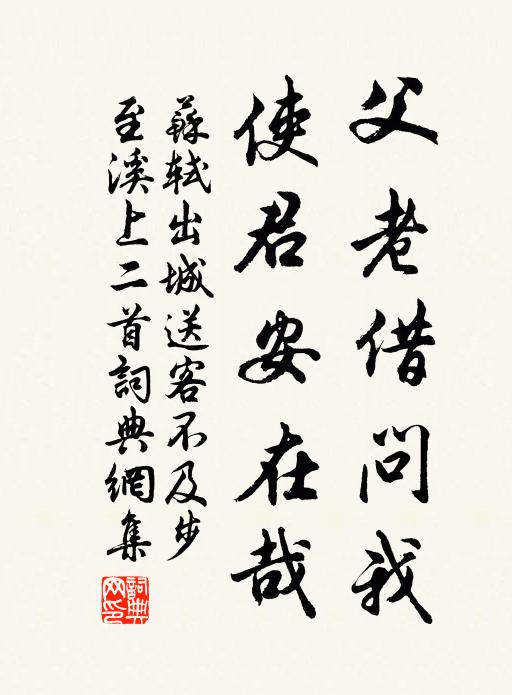 父老借問我
使君安在哉
蘇軾出城送客不及步
至溪上二首詞典網集
詞典
网印